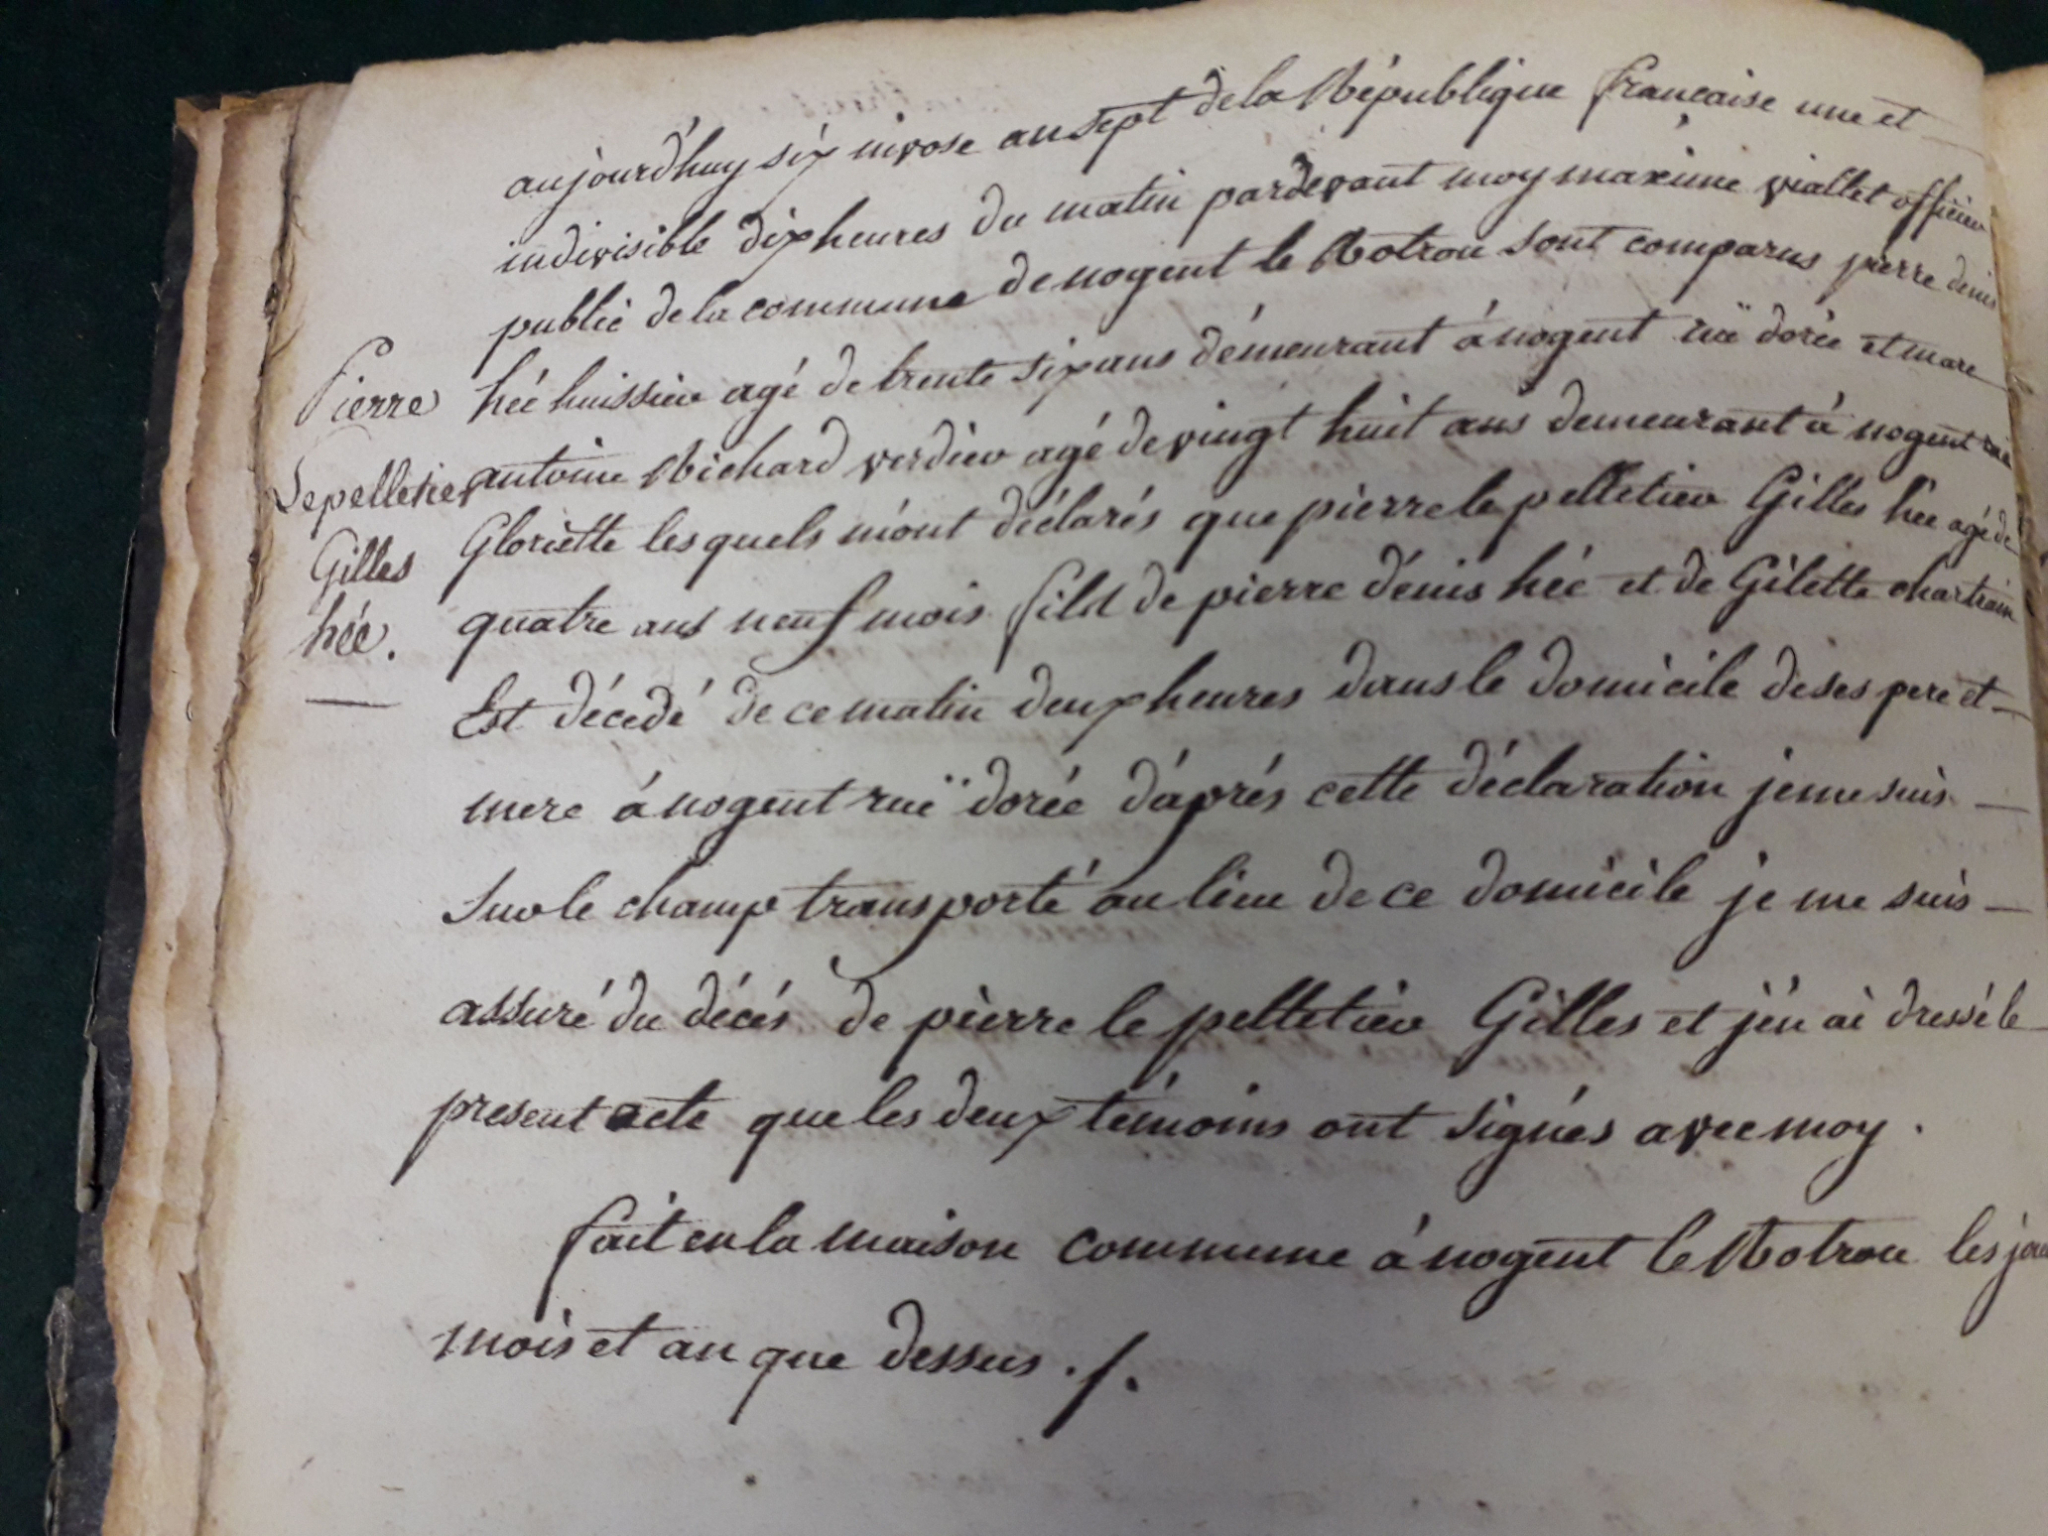 aujourd'huy six nivose an sept de la République francaise une et
indivisible dix heures du matin pardevant moy maxime viallet officier
public de la commune de nogent le Rotrou sont comparus pierre denis
hée huissier agé de trente six ans démeurant á nogent ruë dorée et marc
antoine Richard verdier agé de vingt huit ans demeurant á nogent ruë
Gloriette les quels m'ont déclarés que pierre le pelletier Gilles hée agé de
quatre ans neuf mois fils de pierre dénis hée et de Gilette chartrain
Est décedé de ce matin deux heures dans le domicile de ses pere et
mere á nogent ruë dorée d'aprés cette déclaration je me suis
sur le champ transporté au lieu de ce domicile je me suis
assuré du décés de pierre le pelletier Gilles et j'en ai dressé le
present acte que les deux témoins ont signés avec moy.
fait en la maison commune á nogent le Rotrou les jour
mois et an que dessus ./.
Pierre
Lepelletier
Gilles
hée.